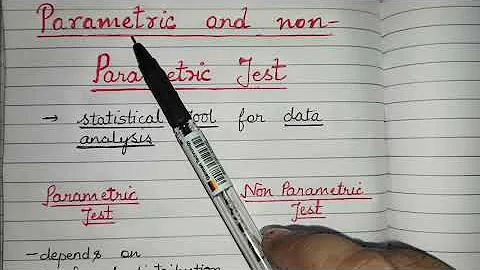 Parametric and non-
Parametric Test
→ statistical tool for data
analysis
Parametric
Test
Non Parametric
Test
- depends on
distribution